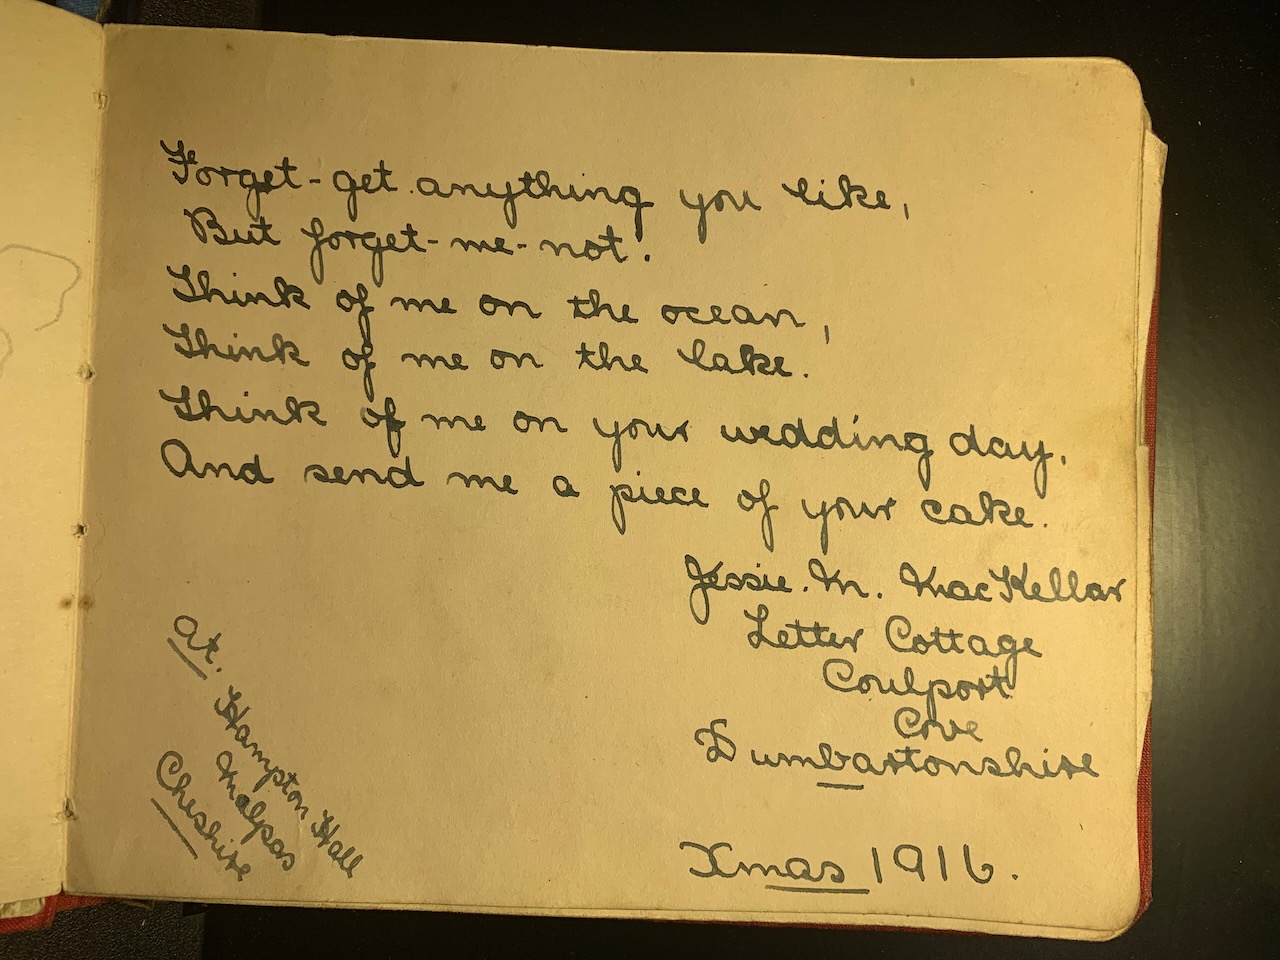 Forget-get anything you like,
But forget-me-not.
Think of me on the ocean,
Think of me on the lake.
Think of me on your wedding day,
And send me a piece of your cake.
Jessie. M. MacKellar
Letter Cottage
Coulport
Cove
Dumbartonshire
At. Hampton Hall
Malpas
Cheshire
Xmas 1916.